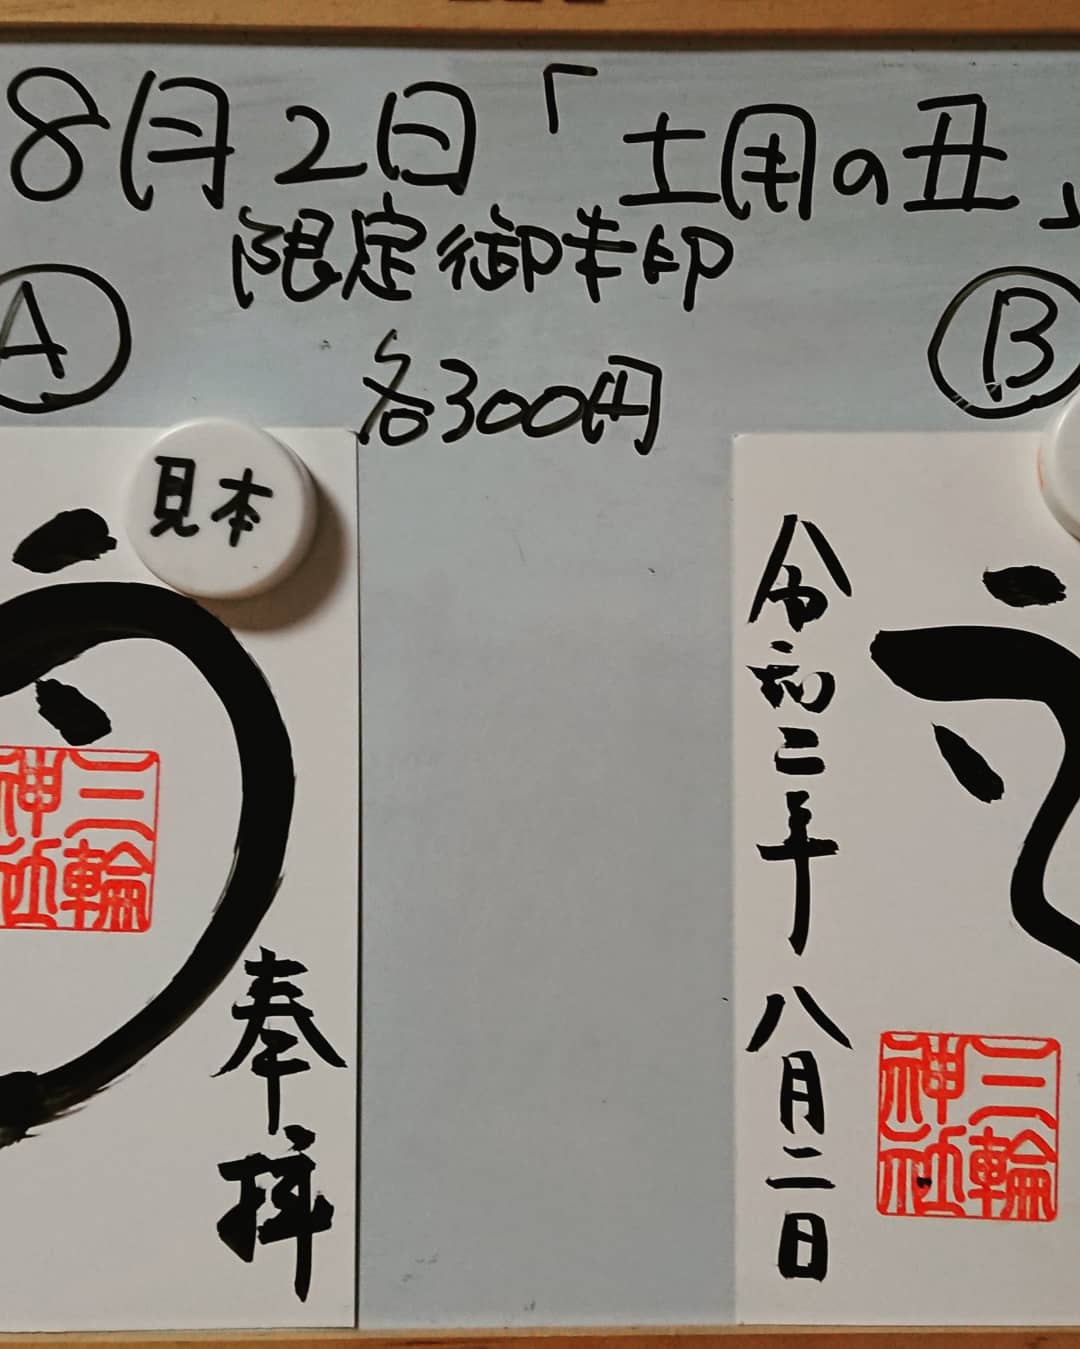 8月2日「土用の丑」
限定御朱印
各300円
A
B
見本
う
三輪神社
奉拝
令和二年八月二日
三輪神社